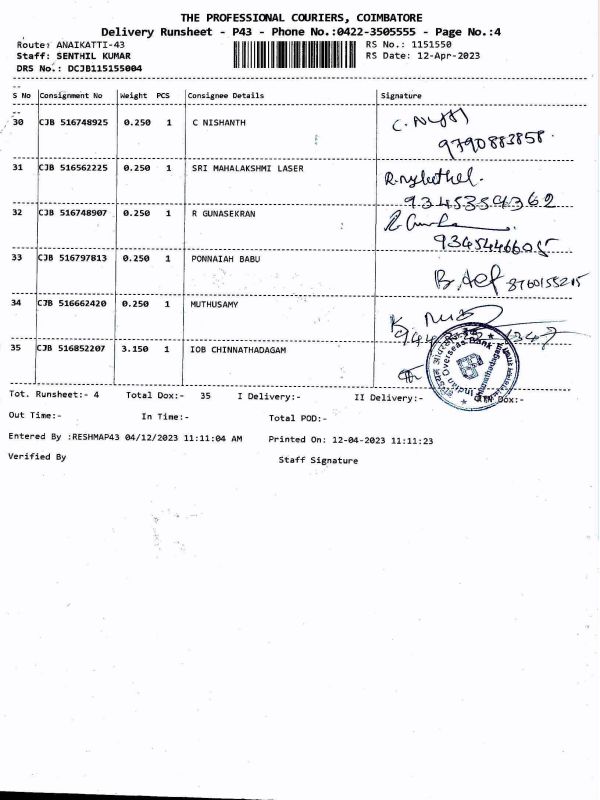 THE PROFESSIONAL COURIERS, COIMBATORE
Delivery Runsheet - P43 - Phone No.:0422-3505555 - Page No.:4
Route: ANAIKATTI-43 RS No.: 1151550
Staff: SENTHIL KUMAR RS Date: 12-Apr-2023
DRS No.: DCJB115155004
S No Consignment No Weight PCS Consignee Details Signature
30 CJB 516748925 0.250 1 C NISHANTH
9790883858.
31 CJB 516562225 0.250 1 SRI MAHALAKSHMI LASER
9345359362
32 CJB 516748907 0.250 1 R GUNASEKRAN
33 CJB 516797813 0.250 1 PONNAIAH BABU
8760155215
34 CJB 516662420 0.250 1 MUTHUSAMY
35 CJB 516852207 3.150 1 IOB CHINNATHADAGAM
Indian Overseas Bank
Tot. Runsheet:- 4 Total Dox:- 35 I Delivery:- II Delivery:- RTN Dox:-
Out Time:- In Time:- Total POD:-
Entered By :RESHMAP43 04/12/2023 11:11:04 AM Printed On: 12-04-2023 11:11:23
Verified By Staff Signature